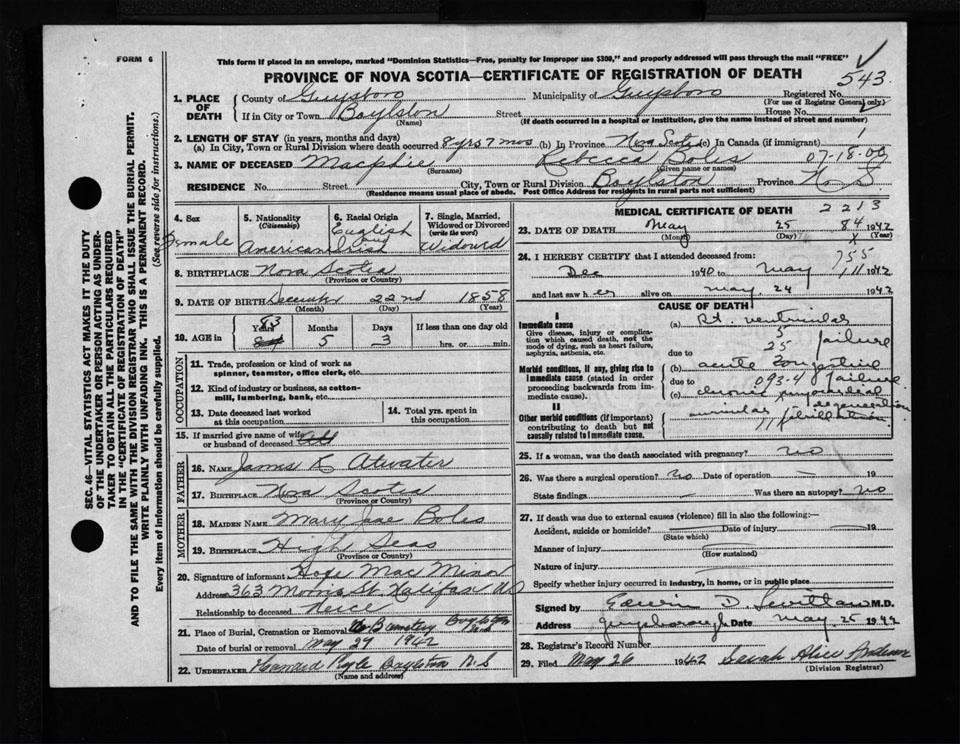 FORM 6
This form if placed in an envelope, marked "Dominion Statistics—Free, penalty for improper use $300," and properly addressed will pass through the mail "FREE"
PROVINCE OF NOVA SCOTIA—CERTIFICATE OF REGISTRATION OF DEATH
543
SEC. 46—VITAL STATISTICS ACT MAKES IT THE DUTY
OF THE UNDERTAKER OR PERSON ACTING AS UNDER-
TAKER TO OBTAIN ALL THE PARTICULARS REQUIRED
IN THE "CERTIFICATE OF REGISTRATION OF DEATH"
AND TO FILE THE SAME WITH THE DIVISION REGISTRAR WHO SHALL ISSUE THE BURIAL PERMIT.
WRITE PLAINLY WITH UNFADING INK. THIS IS A PERMANENT RECORD.
Every item of information should be carefully supplied. (See reverse side for instructions.)
1. PLACE OF DEATH
County of Guysboro Municipality of Guysboro Registered No.
(For use of Registrar General only)
If in City or Town Boylston Street House No.
(Name) (If death occurred in a hospital or institution, give the name instead of street and number)
2. LENGTH OF STAY (in years, months and days)
(a) In City, Town or Rural Division where death occurred 8 yrs 7 mos (b) In Province Nova Scotia (c) In Canada (if immigrant)
3. NAME OF DECEASED Macphie Rebecca Boles 07-18-00
(Surname) (Given name or names)
RESIDENCE No. Street City, Town or Rural Division Boylston Province N. S
(Residence means usual place of abode. Post Office Address for residents in rural parts not sufficient)
4. Sex Female
5. Nationality (Citizenship) American
6. Racial Origin English and Irish
7. Single, Married, Widowed or Divorced (write the word) Widowed
8. BIRTHPLACE Nova Scotia
(Province or Country)
9. DATE OF BIRTH December 22nd 1858
(Month) (Day) (Year)
10. AGE in Years 83 Months 5 Days 3 If less than one day old hrs. or min.
OCCUPATION
11. Trade, profession or kind of work as spinner, teamster, office clerk, etc.
12. Kind of industry or business, as cotton-mill, lumbering, bank, etc.
13. Date deceased last worked at this occupation
14. Total yrs. spent in this occupation
15. If married give name of wife or husband of deceased
FATHER
16. NAME James K Atwater
17. BIRTHPLACE Nova Scotia
(Province or Country)
MOTHER
18. MAIDEN NAME Mary Jae Boles
19. BIRTHPLACE High Seas
(Province or Country)
20. Signature of informant Hope Mac Minor
Address 363 Morris St Halifax NS
Relationship to deceased Neice
21. Place of Burial, Cremation or Removal Boylston
Date of burial or removal May 27 1942
22. UNDERTAKER Kyle Boylston N.S
(Name and address)
MEDICAL CERTIFICATE OF DEATH 2213
23. DATE OF DEATH May 25 84 1942
(Month) (Day) (Year)
24. I HEREBY CERTIFY that I attended deceased from: 755
Dec 1940 to May 1942
and last saw her alive on May 24 1942
CAUSE OF DEATH
I
Immediate cause
Give disease, injury or complication which caused death, not the mode of dying, such as heart failure, asphyxia, asthenia, etc.
(a) Rt. ventricular failure
5
25
due to
Morbid conditions, if any, giving rise to immediate cause (stated in order proceeding backwards from immediate cause).
(b) acute congestive failure
due to 093-4
(c) chronic myocardial degeneration
II
Other morbid conditions (if important) contributing to death but not causally related to immediate cause.
auricular fibrillation
25. If a woman, was the death associated with pregnancy? no
26. Was there a surgical operation? no Date of operation 19
State findings Was there an autopsy? no
27. If death was due to external causes (violence) fill in also the following:—
Accident, suicide or homicide? Date of injury 19
(State which)
Manner of injury
(How sustained)
Nature of injury
Specify whether injury occurred in industry, in home, or in public place
Signed by Edwin D M.D.
Address Guysborough Date May 25 1942
28. Registrar's Record Number
29. Filed May 26 1942 Sarah Alice
(Division Registrar)